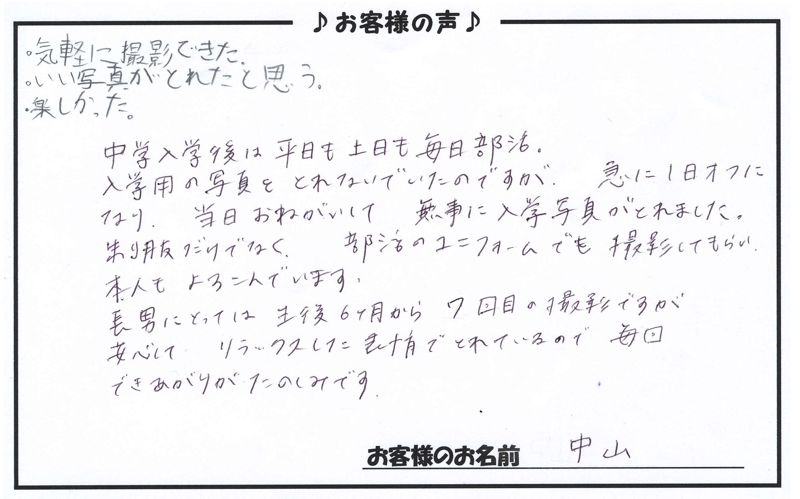 ♪お客様の声♪
・気軽に撮影できた。
・いい写真がとれたと思う。
・楽しかった。
中学入学後は平日も土日も毎日部活。
入学用の写真をとれないでいたのですが、急に1日オフに
なり、当日おねがいして無事に入学写真がとれました。
制服だけでなく、部活のユニフォームでも撮影してもらい、
本人もよろこんでいます。
長男にとっては生後6ヶ月から7回目の撮影ですが
安心して リラックスした表情でとれているので 毎回
できあがりがたのしみです。
お客様のお名前 中山